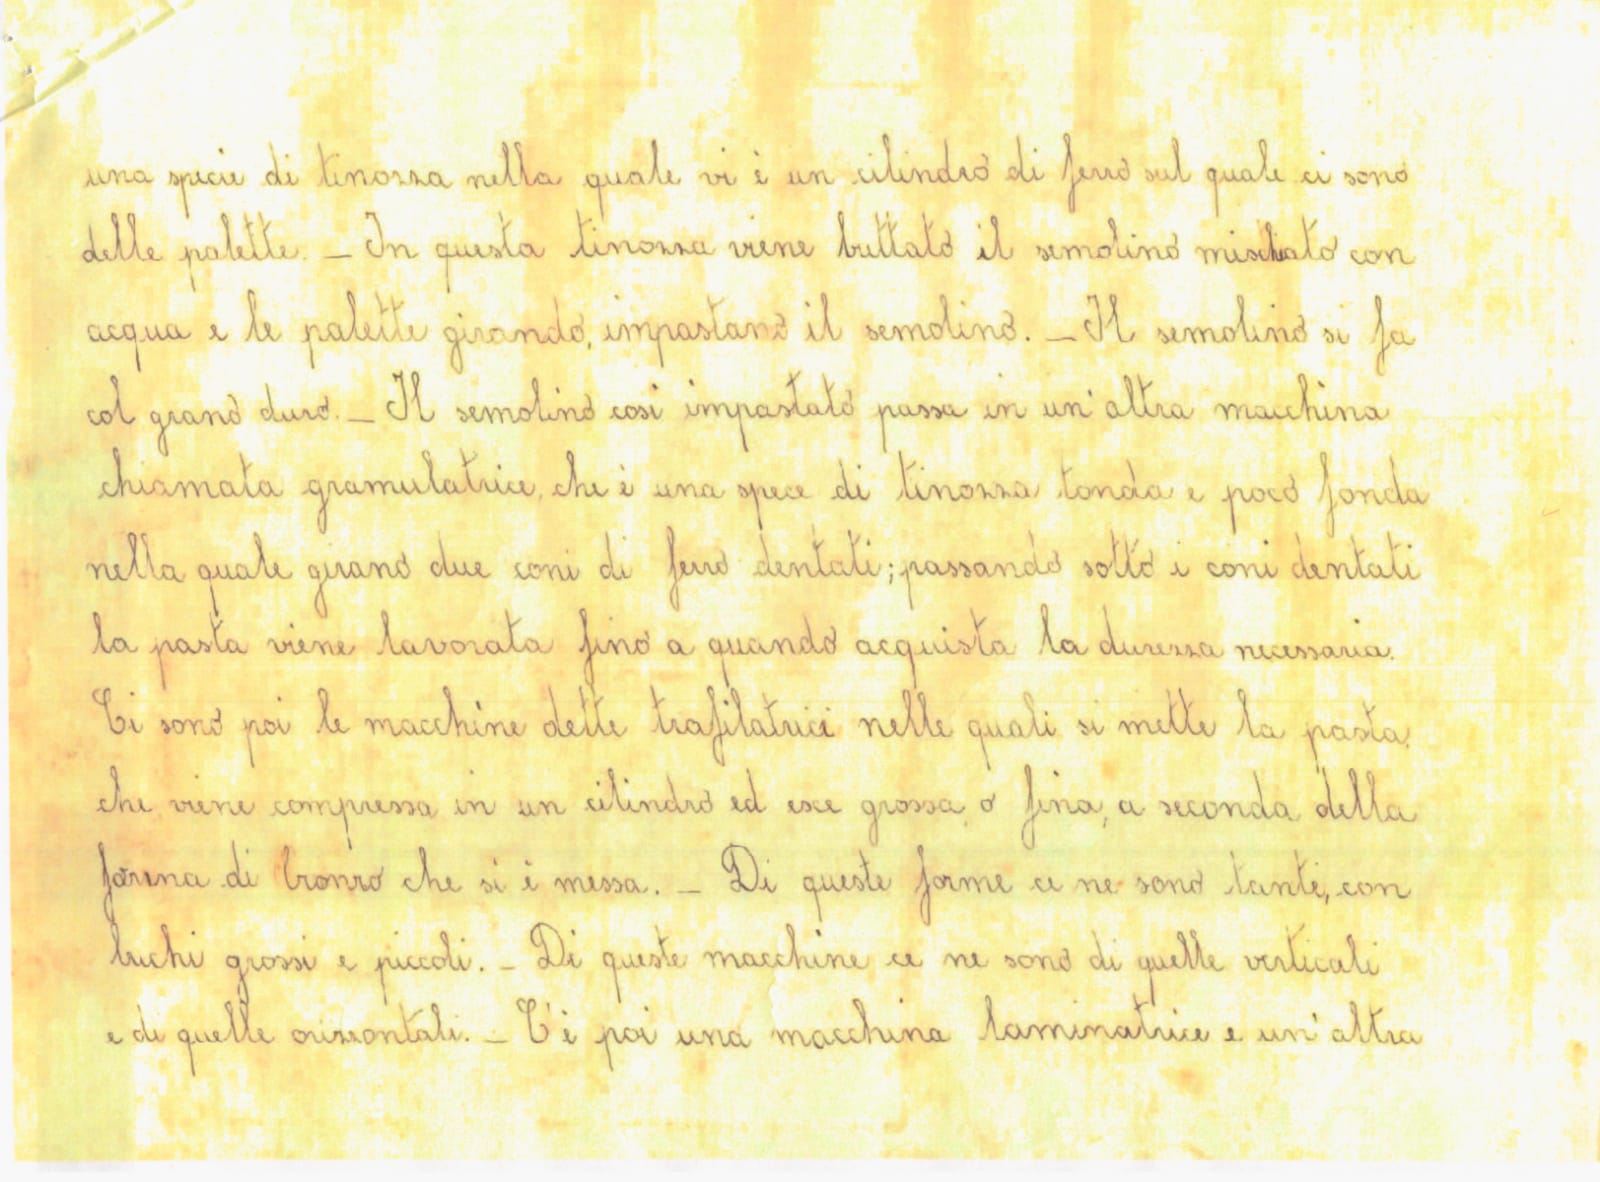 una specie di tinozza nella quale vi è un cilindro di ferro sul quale ci sono
delle palette. _ In questa tinozza viene buttato il semolino mischiato con
acqua e le palette girando, impastano il semolino. _ Il semolino si fa
col grano duro. _ Il semolino così impastato passa in un'altra macchina
chiamata gramulatrice, che è una spece di tinozza tonda e poco fonda
nella quale girano due coni di ferro dentati; passando sotto i coni dentati
la pasta viene lavorata fino a quando acquista la durezza necessaria.
Ci sono poi le macchine dette trafilatrici nelle quali si mette la pasta,
che viene compressa in un cilindro ed esce grossa, o fina, a seconda della
di bronzo che si è messa. _ Di queste forme ce ne sono tante, con
buchi grossi e piccoli. _ Di queste macchine ce ne sono di quelle verticali
e di quelle orizzontali. _ C'è poi una macchina laminatrice e un'altra